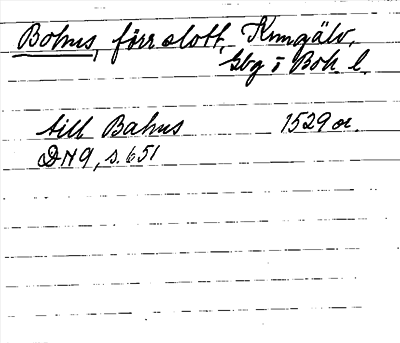 Bohus, förr slott, Kungälv,
Gbg o Boh l.
till Bahus 1529 or.
DN 9, s. 651